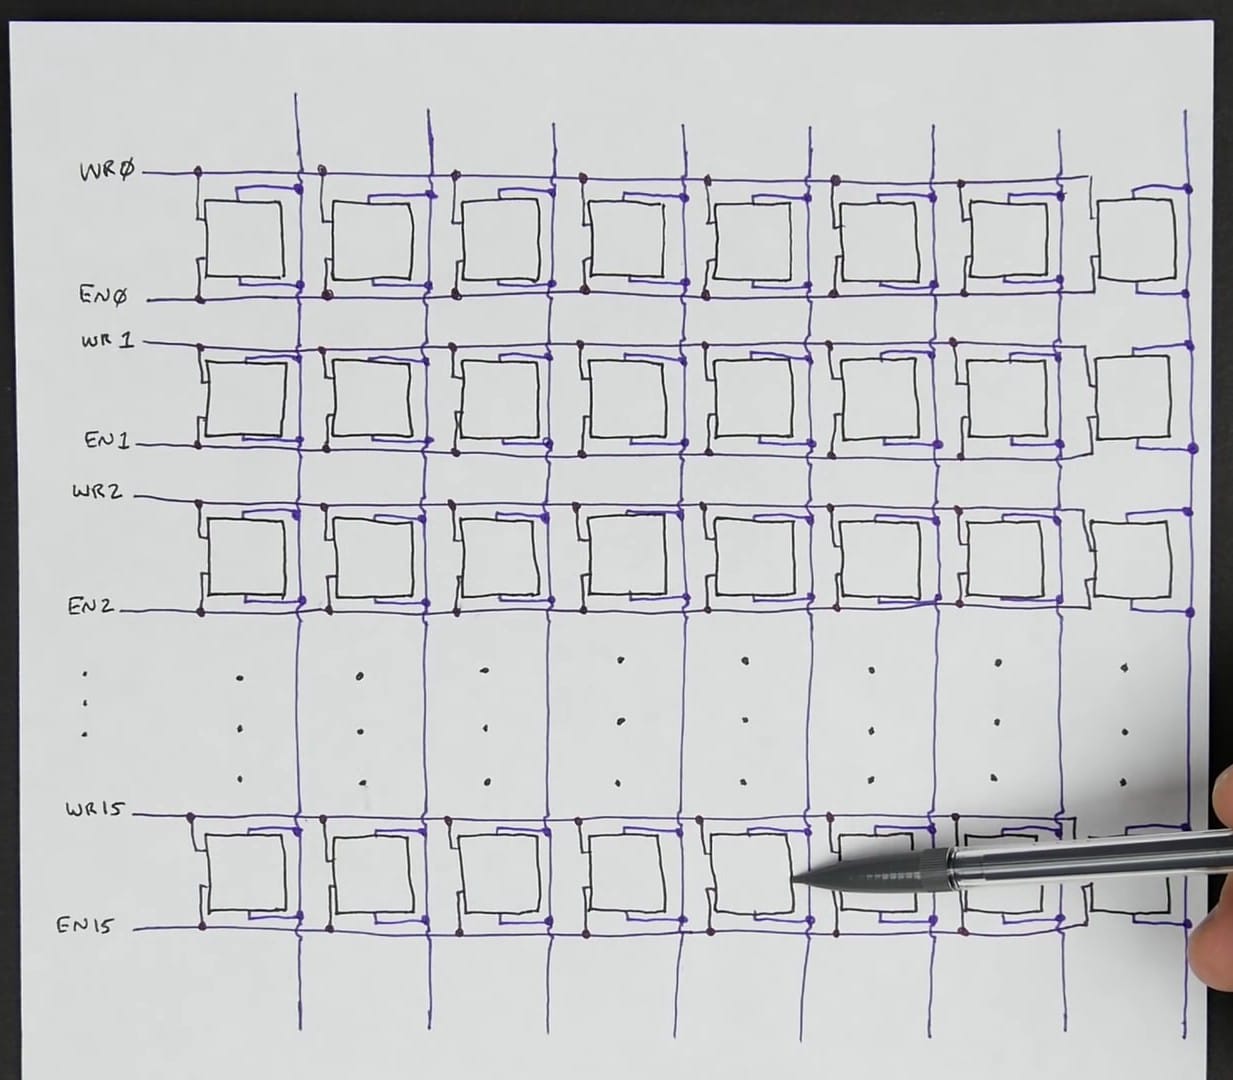 WR0
EN0
WR1
EN1
WR2
EN2
WR15
EN15